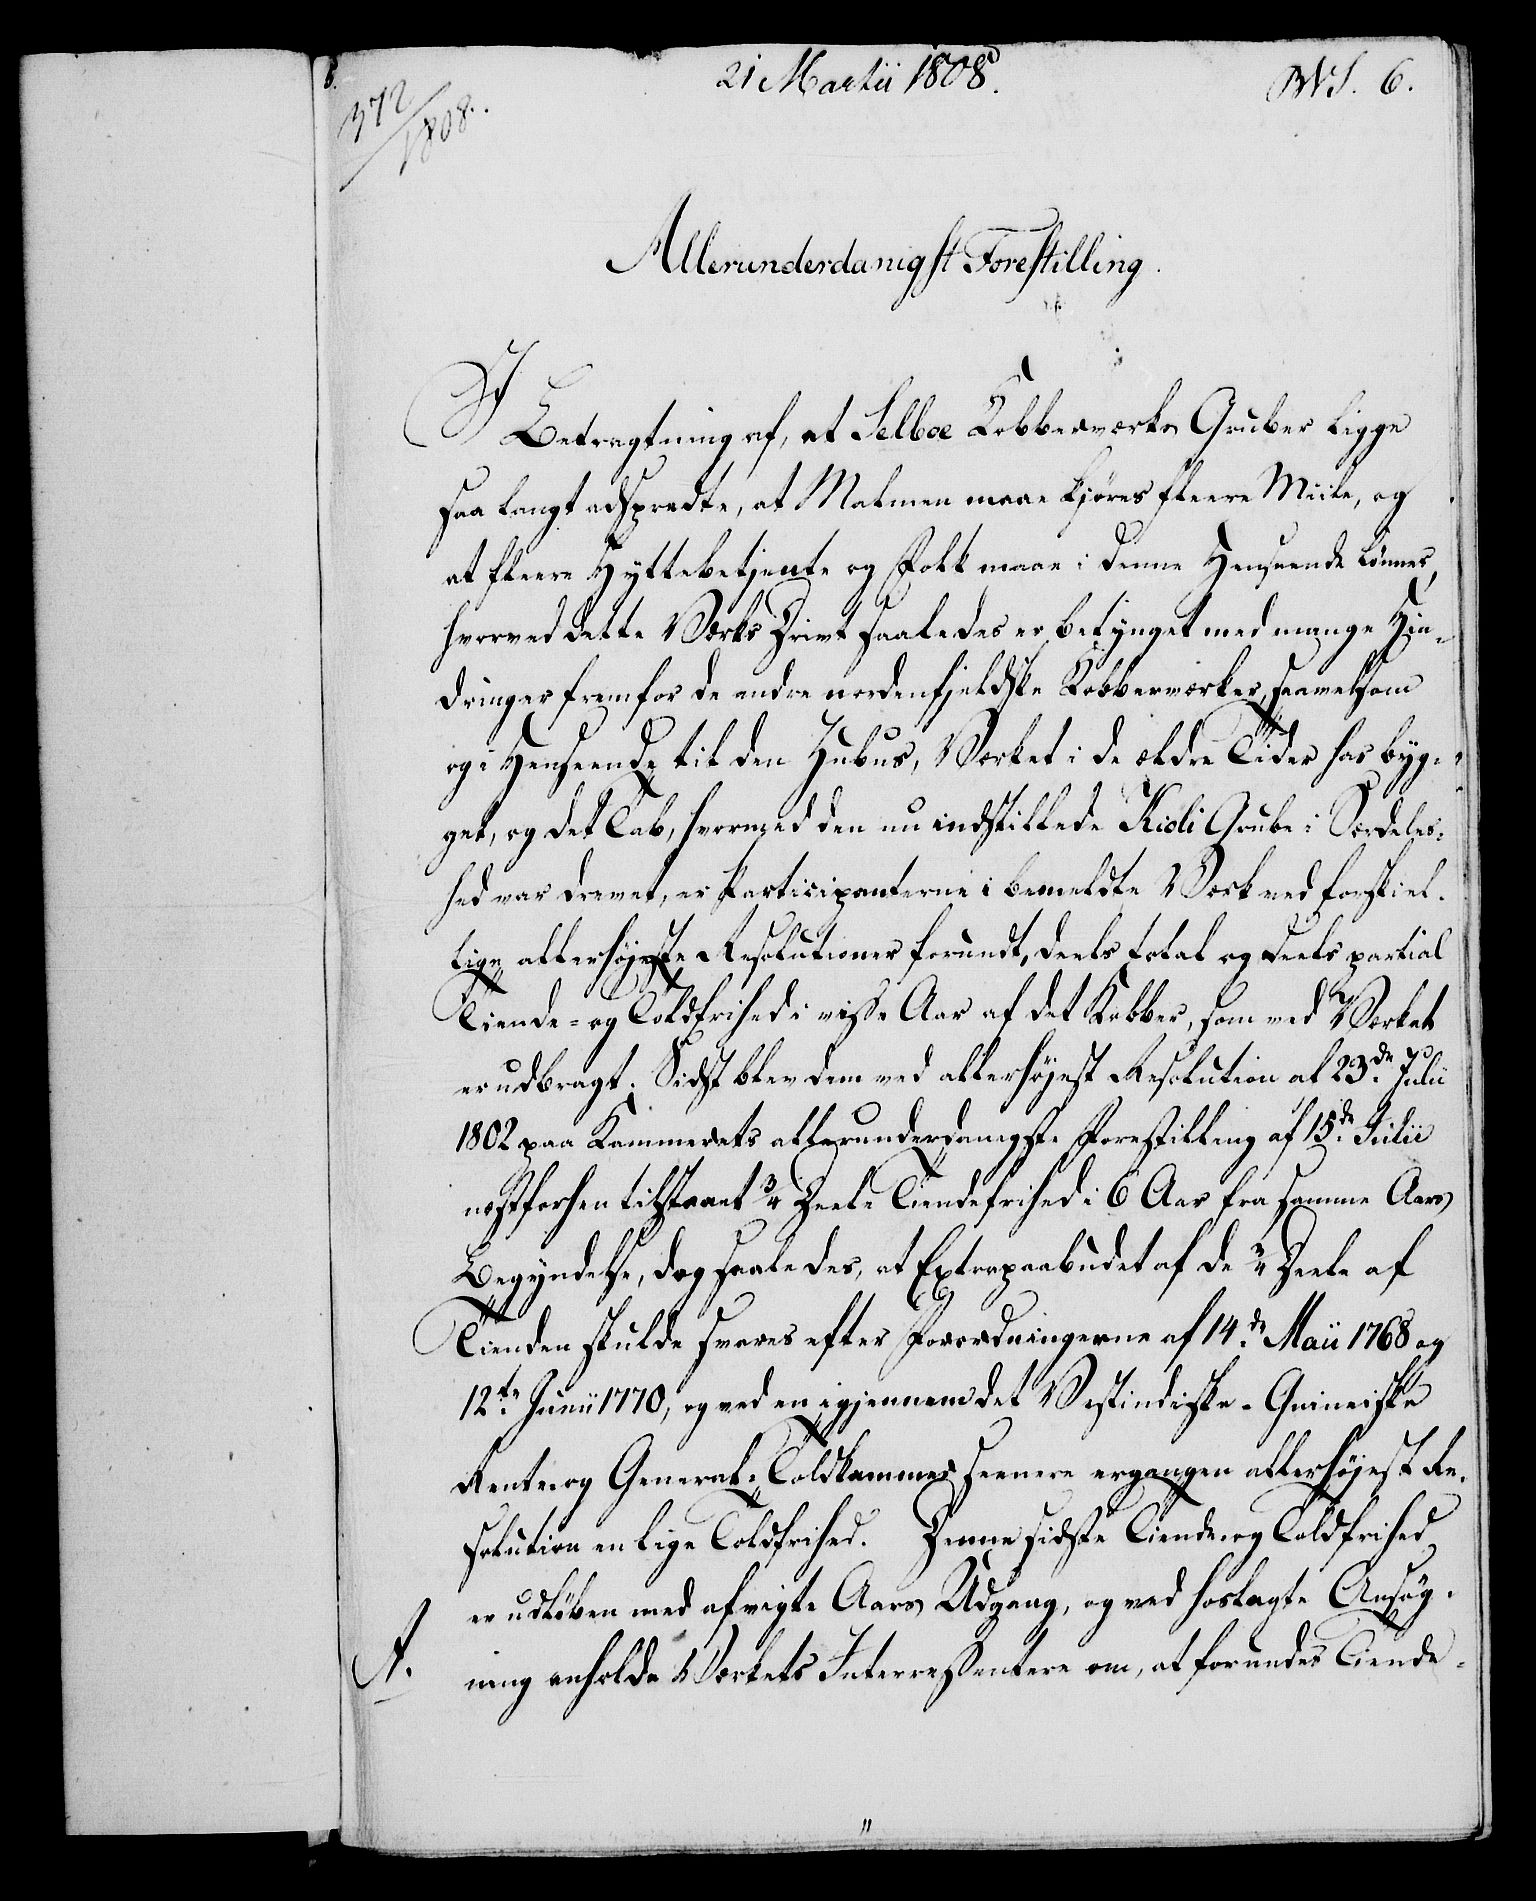 21 Martii 1808.
No. 6.
372/1808.
Allerunderdanigst Forestilling.
I Betragtning af, at Selboe Kobberværks Gruber ligge
saa langt adspredte, at Malmen maae kjøres fleere Miile, og
at fleere Hyttebetjente og Folk maae i denne Henseende lønnes,
hvorved dette Værks Drivt saaledes er betynget med mange Hin-
dringer fremfor de andre nordenfjeldske Kobberværker, saavelsom
og i Henseende til den Zubus, Værket i de ældre Tider har byg-
get, og det Tab, hvormed den nu indstillede Kioli Grube i Særdeles-
hed var drevet, er Participanterne i bemeldte Værk ved forskiel-
lige allerhøjeste Resolutioner forundt, deels total og deels partial
Tiende- og Toldfrihed i visse Aar af det Kobber, som ved Værket
er udbragt. Sidst blev dem ved allerhøjest Resolution af 23de Julii
1802 paa Kammerets allerunderdanigste Forestilling af 15de Julii
næstforhen tilstaaet 3/4 Deele Tiendefrihed i 6 Aar fra samme Aars
Begyndelse, dog saaledes, at Extrapaabudet af de 3/4 Deele af
Tienden skulde svares efter Forordningerne af 14de Maii 1768 og
12te Junii 1770, og ved en igjennem det Vestindiske-Guineiske
Rente- og General-Toldkammer seenere ergangen allerhøjest Re-
solution en lige Toldfrihed. Denne sidste Tiende- og Toldfrihed
er udløben med afvigte Aars Udgang, og ved hoslagte Ansøg-
A.
ning anholde Værkets Interressentere om, at forundes Tiende-